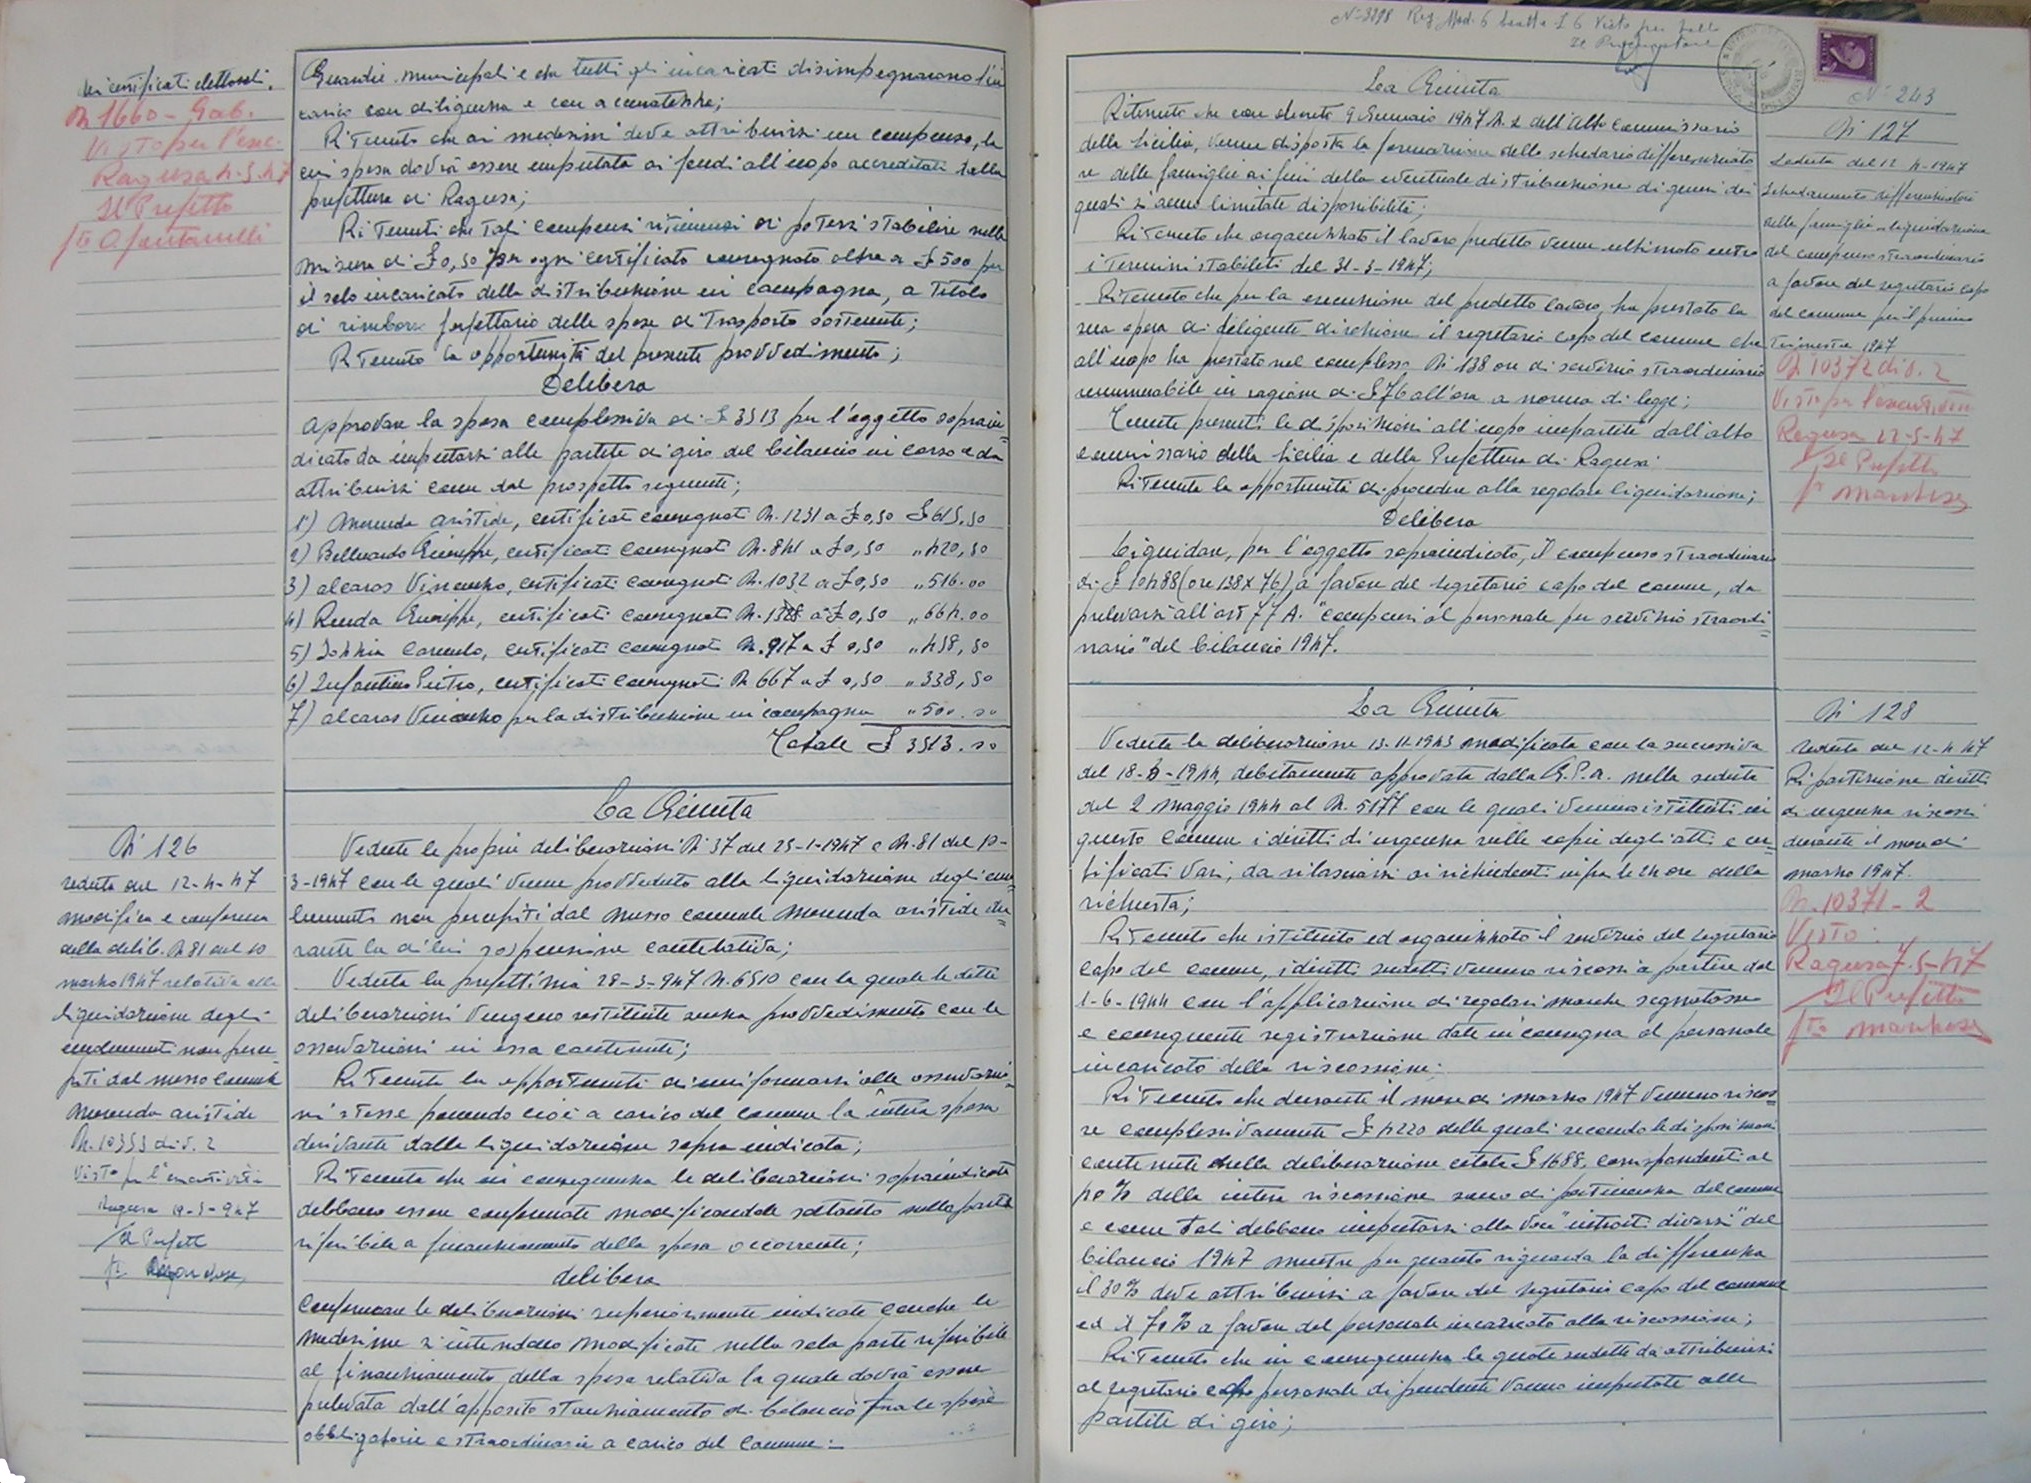 dei certificati elettorali.
N 1660 - Gab.
Visto per l'esec.
Ragusa 4-5-47
Il Prefetto
Guardie municipali e che tutti gli incaricati disimpegnarono l'in
carico con diligenza e con accuratezza;
Ritenuto che ai medesimi deve attribuirsi un compenso, la
cui spesa dovrà essere imputata ai fondi all'uopo accreditati dalla
prefettura di Ragusa;
Ritenuti che tali compensi di potersi stabilire nella
misura di £ 0,50 per ogni certificato consegnato oltre a £ 500 per
il solo incaricato della distribuzione in campagna, a titolo
di rimborso forfettario delle spese di trasporto sostenute;
Ritenuto la opportunità del presente provvedimento;
Delibera
approvare la spesa complessiva di £ 3513 per l'oggetto soprain=
dicato da imputarsi alle partite di giro del bilancio in corso e da
attribuirsi come dal prospetto seguente;
1) Morenda Aristide, certificati consegnati N. 1231 a £ 0,50 £ 615,50
2) Belluardo Giuseppe, certificati consegnati N. 841 a £ 0,50 " 420,50
3) Alcaras Vincenzo, certificati consegnati N. 1032 a £ 0,50 " 516.00
4) Renda Giuseppe, certificati consegnati N. 1328 a £ 0,50 " 664.00
5) Carmelo, certificati consegnati N. 917 a £ 0,50 " 458,50
6) Infantino Pietro, certificati consegnati N 667 a £ 0,50 " 338,50
7) Alcaras Vincenzo per la distribuzione in campagna " 500.00
Totale £ 3513.00
La Giunta
N 126
seduta del 12-4-47
modifica e conferma
della delib. N 81 del 10
marzo 1947 relativa alla
liquidazione degli
emolumenti non perce
piti dal messo comunale
Morenda Aristide
N. 10353 div. 2
Visto per l'esecutività
Ragusa 19-5-947
Il Prefetto
Vedute le proprie deliberazioni N 37 del 25-1-1947 e N. 81 del 10-
3-1947 con le quali venne provveduto alla liquidazione degli emo=
lumenti non percepiti dal messo comunale Morenda Aristide du=
rante la di lui sospensione cautelativa;
Veduta la prefettizia 28-3-947 N. 6510 con la quale le dette
deliberazioni vengono restituite senza provvedimento con le
osservazioni in essa contenute;
Ritenuta la opportunità di uniformarsi alle osservazio=
ni stesse ponendo cioè a carico del comune la intera spesa
derivante dalla liquidazione sopra indicata;
Ritenuta che in conseguenza le deliberazioni sopraindicate
debbano essere confermate modificandole soltanto nella parte
riferibile a finanziamento della spesa occorrente;
delibera
Confermare le deliberazioni superiormente indicate con che le
medesime s'intendono modificate nella sola parte riferibile
al finanziamento della spesa relativa la quale dovrà essere
prelevata dall'apposito stanziamento di bilancio fra le spese
obbligatorie e straordinarie a carico del Comune:-
N° 3298 Reg. Mod. 6 Visto per bollo
La Giunta
N° 243
N 127
Seduta del 12 4-1947
schedamento differenziatore
delle famiglie - liquidazione
del compenso straordinario
a favore del segretario capo
del comune per il primo
trimestre 1947
N 10372 div. 2
Visto per l'esecutività
Ragusa 22-5-47
Il Prefetto
Ritenuto che con decreto 9 Gennaio 1947 N. 2 dell'Alto Commissario
della Sicilia, venne disposta la formazione dello schedario differenziato
re delle famiglie ai fini della eventuale distribuzione di generi dei
quali si hanno limitate disponibilità;
Ritenuto che organizzato il lavoro predetto venne ultimato entro
i termini stabiliti del 31-3-1947;
Ritenuto che per la esecuzione del predetto lavoro, ha prestato la
sua opera di diligente direzione il segretario capo del comune che
all'uopo ha prestato nel complesso N 138 ore di servizio straordinario
remunerabile in ragione di £ 76 all'ora a norma di legge;
Tenute presenti le disposizioni all'uopo impartite dall'alto
commissario della Sicilia e della Prefettura di Ragusa:
Ritenuta la opportunità di procedere alla regolare liquidazione;
Delibera
Liquidare, per l'oggetto sopraindicato, il compenso straordinario
di £ 10488 (ore 138 x 76), a favore del segretario capo del comune, da
prelevarsi all'art 77 A. "compensi al personale per servizio straordi=
nario" del bilancio 1947.
La Giunta
N 128
seduta del 12-4-47
Ripartizione diritti
di urgenza riscossi
durante il mese di
marzo 1947.
N. 10371 - 2
Visto:
Ragusa 7-5-47
Il Prefetto
Veduta la deliberazione 13-11-1943 modificata con la successiva
del 18- -1944, debitamente approvata dalla G.P.A. nella seduta
del 2 maggio 1944 al N. 5177 con le quali vennero istituiti in
questo comune i diritti di urgenza sulle copie degli atti e cer=
tificati vari, da rilasciarsi ai richiedenti infra le 24 ore della
richiesta;
Ritenuto che istituito ed organizzato il servizio del segretario
capo del comune, i diritti suddetti vennero riscossi a partire dal
1-6-1944 con l'applicazione di regolari marche segnatasse
e conseguente registrazione date in consegna al personale
incaricato della riscossione:
Ritenuto che durante il mese di marzo 1947 vennero riscos=
se complessivamente £ 4220 delle quali secondo le disposizioni
contenute nella deliberazione citata £ 1688, corrispondenti al
40% della intera riscossione sono di pertinenza del comune
e come tali debbono imputarsi alla voce "introiti diversi" del
bilancio 1947 mentre per quanto riguarda la differenza
il 30% deve attribuirsi a favore del segretario capo del comune
ed il 70% a favore del personale incaricato alla riscossione;
Ritenuto che in conseguenza le quote suddette da attribuirsi
al segretario capo personale dipendente vanno imputate alle
partite di giro;